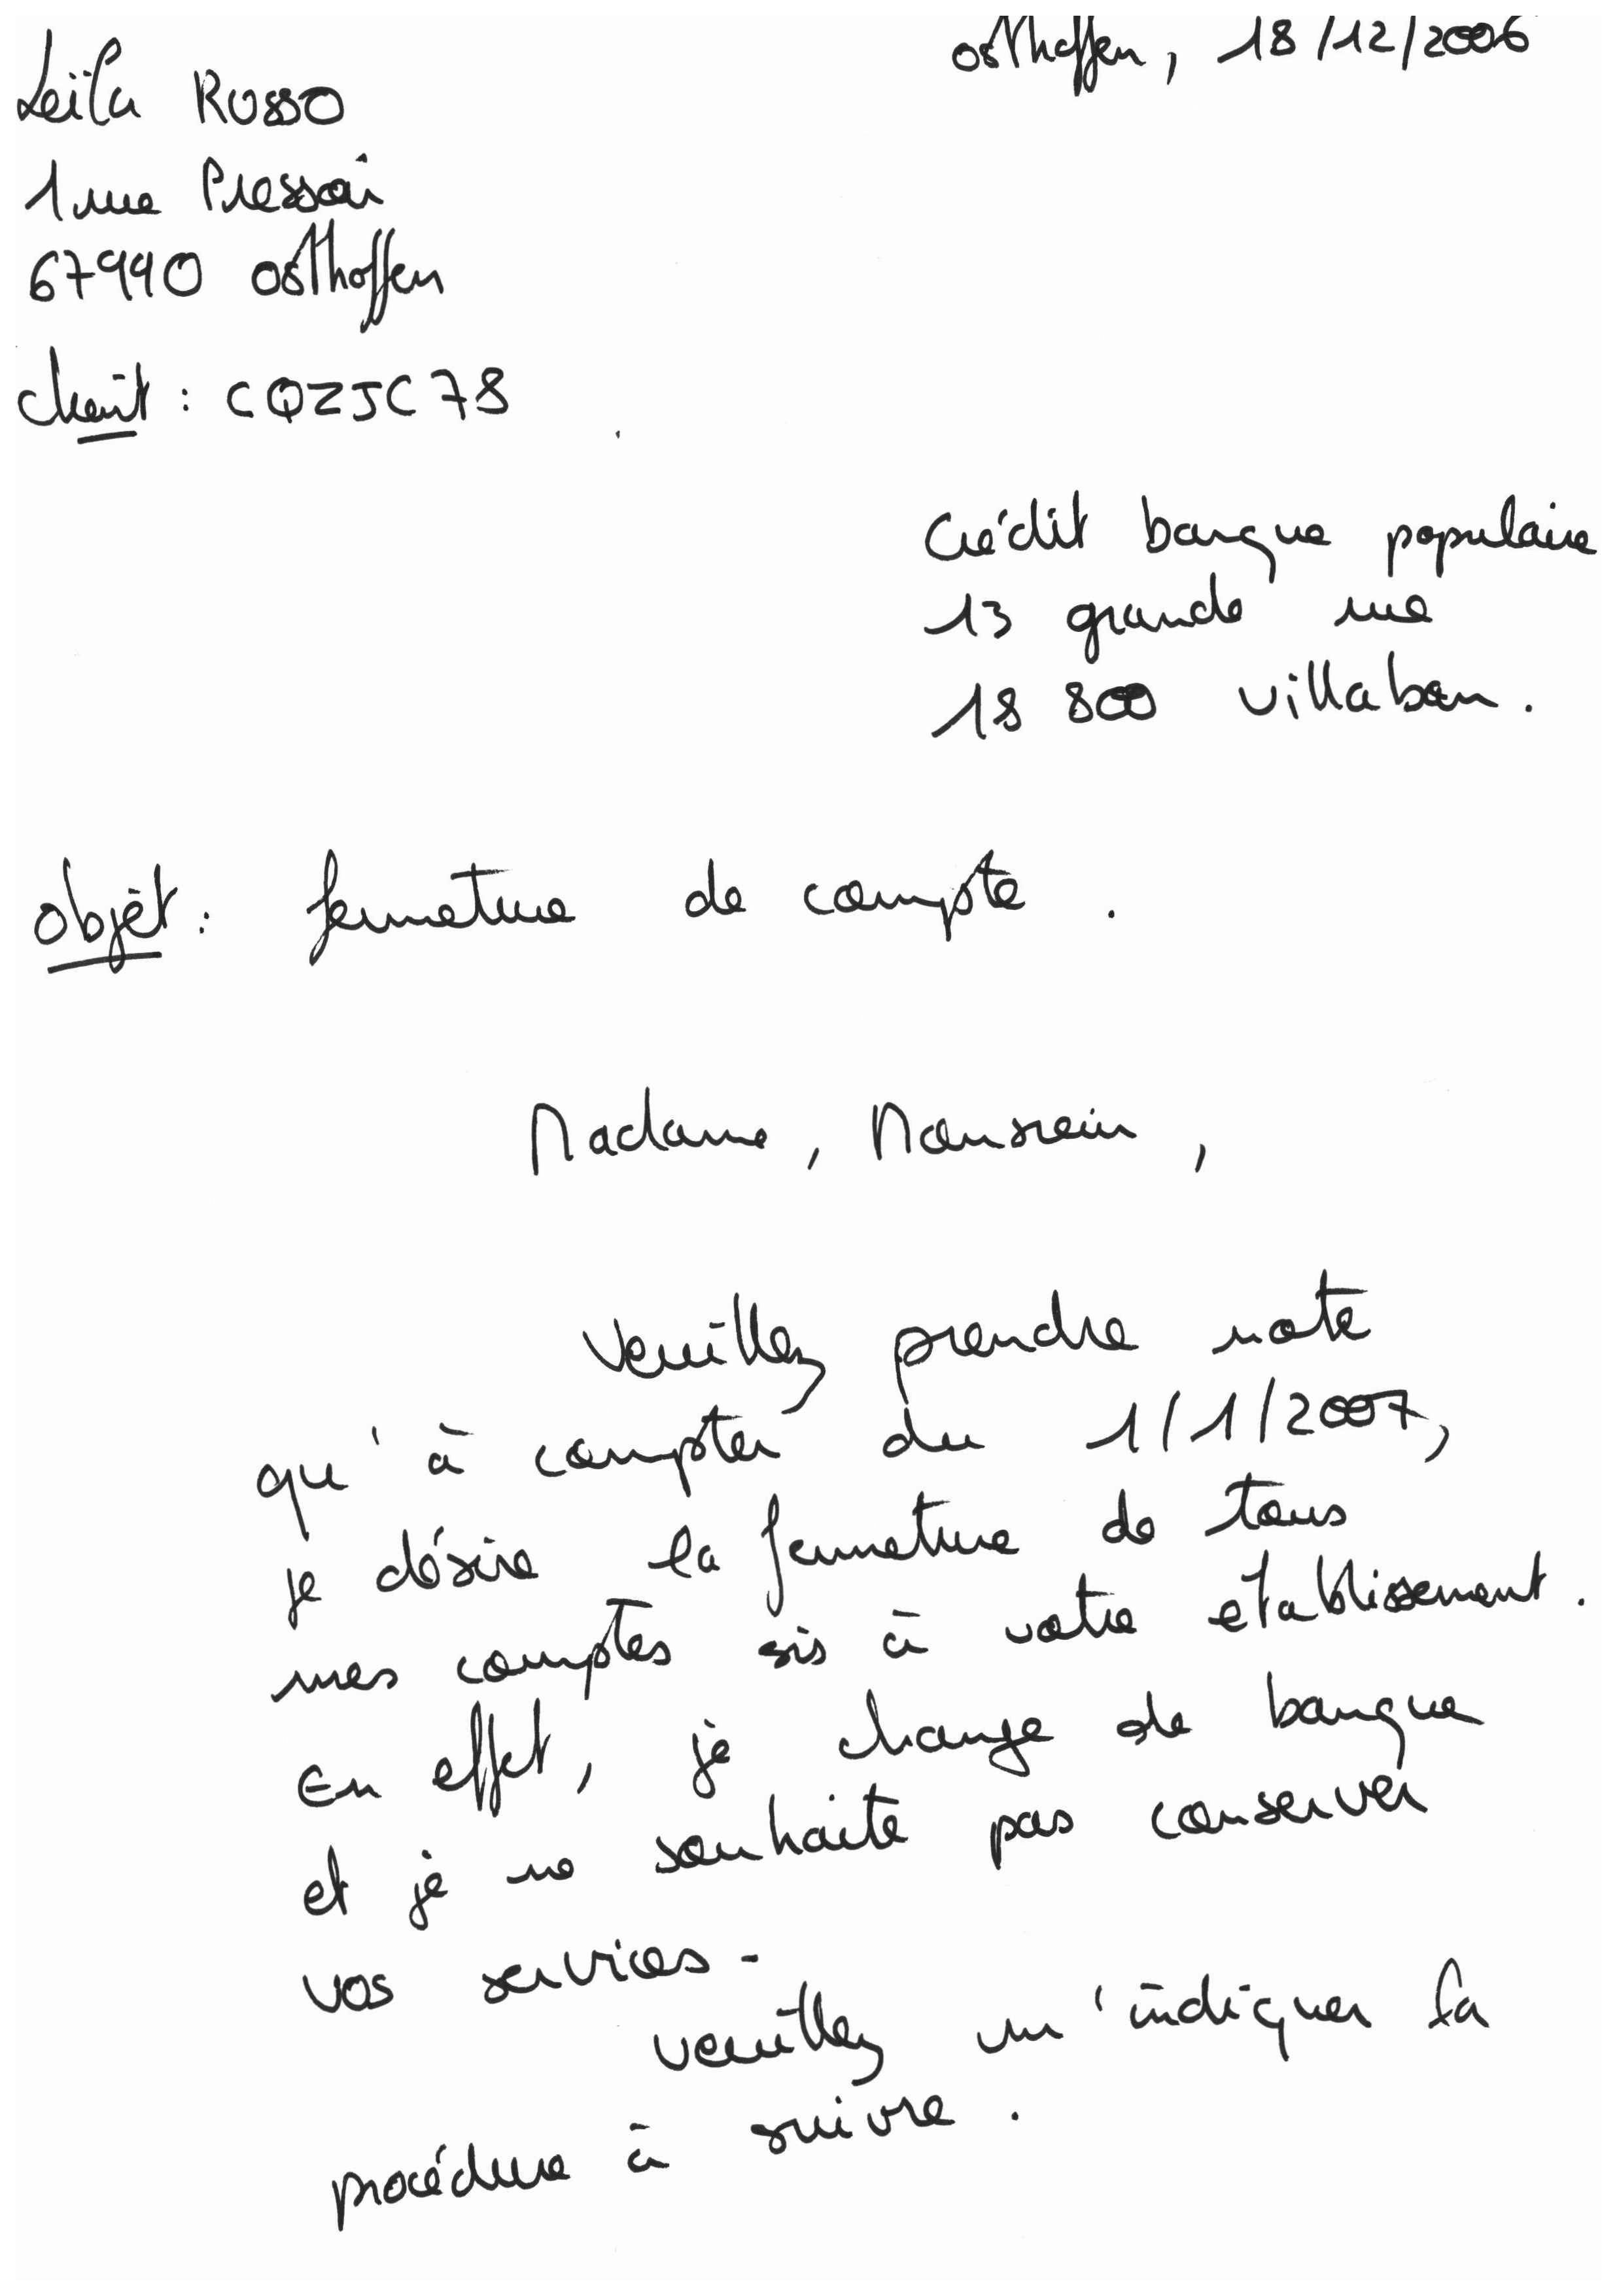 Leïla RUSSO
osthoffen, 18/12/2006
1 rue Pressoir
67990 osthoffen
client : CQZJC78
Crédit banque populaire
13 grande rue
18 800 villabon.
objet : fermeture de compte.
Madame, Monsieur,
Veuillez prendre note
qu'à compter du 1/1/2007,
je désire la fermeture de tous
mes comptes sis à votre etablissement.
En effet, je change de banque
et je ne souhaite pas conserver
vos services.
veuillez m'indiquer la
procédure à suivre.